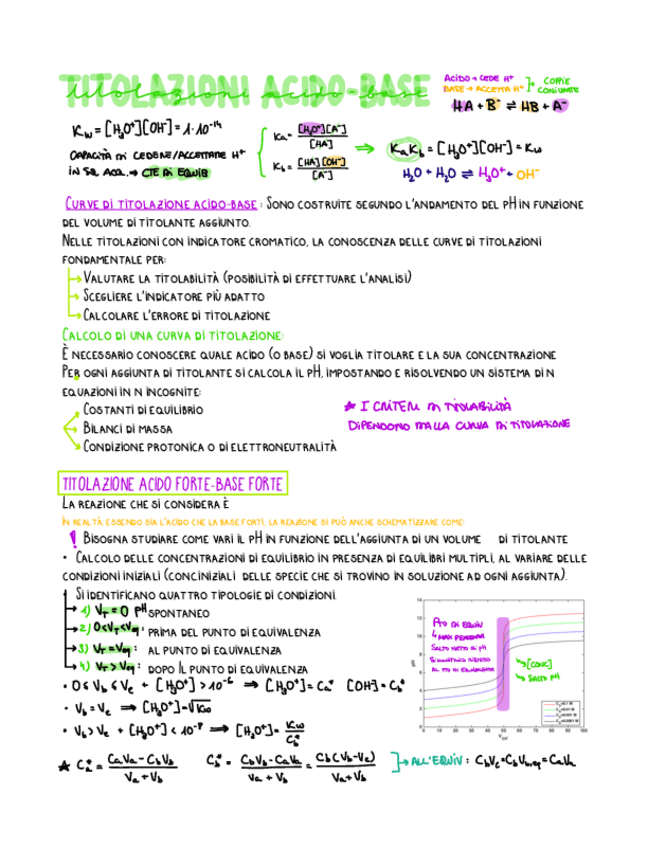 TITOLAZIONI ACIDO-BASE
titolazioni acido-base
ACIDO → CEDE H⁺
BASE → ACCETTA H⁺
COPPIE CONIUGATE
HA + B⁻ ⇌ HB + A⁻
Kw = [H₃O⁺][OH⁻] = 1·10⁻¹⁴
CAPACITÀ DI CEDERE/ACCETTARE H⁺
IN SOL ACQ. → CTE DI EQUIB
Ka = [H₃O⁺][A⁻] / [HA]
Kb = [HA][OH⁻] / [A⁻]
KaKb = [H₃O⁺][OH⁻] = Kw
H₂O + H₂O ⇌ H₃O⁺ + OH⁻
CURVE DI TITOLAZIONE ACIDO-BASE: SONO COSTRUITE SEGUNDO L'ANDAMENTO DEL PH IN FUNZIONE
DEL VOLUME DI TITOLANTE AGGIUNTO.
NELLE TITOLAZIONI CON INDICATORE CROMATICO, LA CONOSCENZA DELLE CURVE DI TITOLAZIONI
FONDAMENTALE PER:
VALUTARE LA TITOLABILITÀ (POSIBILITÀ DI EFFETTUARE L'ANALISI)
SCEGLIERE L'INDICATORE PIÙ ADATTO
CALCOLARE L'ERRORE DI TITOLAZIONE
CALCOLO DI UNA CURVA DI TITOLAZIONE:
È NECESSARIO CONOSCERE QUALE ACIDO (O BASE) SI VOGLIA TITOLARE E LA SUA CONCENTRAZIONE
PER OGNI AGGIUNTA DI TITOLANTE SI CALCOLA IL PH, IMPOSTANDO E RISOLVENDO UN SISTEMA DI N
EQUAZIONI IN N INCOGNITE:
COSTANTI DI EQUILIBRIO
BILANCI DI MASSA
CONDIZIONE PROTONICA O DI ELETTRONEUTRALITÀ
* I CRITERI DI TITOLABILITÀ
DIPENDONO DALLA CURVA DI TITOLAZIONE
TITOLAZIONE ACIDO FORTE-BASE FORTE
LA REAZIONE CHE SI CONSIDERA È
IN REALTÀ, ESSENDO SIA L'ACIDO CHE LA BASE FORTI, LA REAZIONE SI PUÒ ANCHE SCHEMATIZZARE COME:
! BISOGNA STUDIARE COME VARI IL PH IN FUNZIONE DELL'AGGIUNTA DI UN VOLUME DI TITOLANTE
• CALCOLO DELLE CONCENTRAZIONI DI EQUILIBRIO IN PRESENZA DI EQUILIBRI MULTIPLI, AL VARIARE DELLE
CONDIZIONI INIZIALI (CONC INIZIALI DELLE SPECIE CHE SI TROVINO IN SOLUZIONE AD OGNI AGGIUNTA).
SI IDENTIFICANO QUATTRO TIPOLOGIE DI CONDIZIONI.
1) VT = 0 PH SPONTANEO
2) 0<VT<Veq: PRIMA DEL PUNTO DI EQUIVALENZA
3) VT = Veq: AL PUNTO DI EQUIVALENZA
4) VT > Veq: DOPO IL PUNTO DI EQUIVALENZA
• 0 ≤ Vb ≤ Ve + [H₃O⁺] > 10⁻⁶ ⇒ [H₃O⁺] = Ca* [OH⁻] = Cb*
• Vb = Ve ⇒ [H₃O⁺] = √Kw
• Vb > Ve + [H₃O⁺] < 10⁻⁸ ⇒ [H₃O⁺] = Kw / Cb*
PTO DI EQUIV
MAX PENDENZA
SALTO NETTO DI PH
SIMMETRICO RISPETTO
AL PTO DI EQUIVALENZA
[CONC]
SALTO PH
pH
0 2 4 6 8 10 12 14
0 10 20 30 40 50 60 70 80 90 100
* Ca* = CaVa − CbVb / Va + Vb
Cb* = CbVb − CaVa / Va + Vb = Cb(Vb−Ve) / Va+Vb
ALL'EQUIV: CbVe = CbVb,eq = CaVa